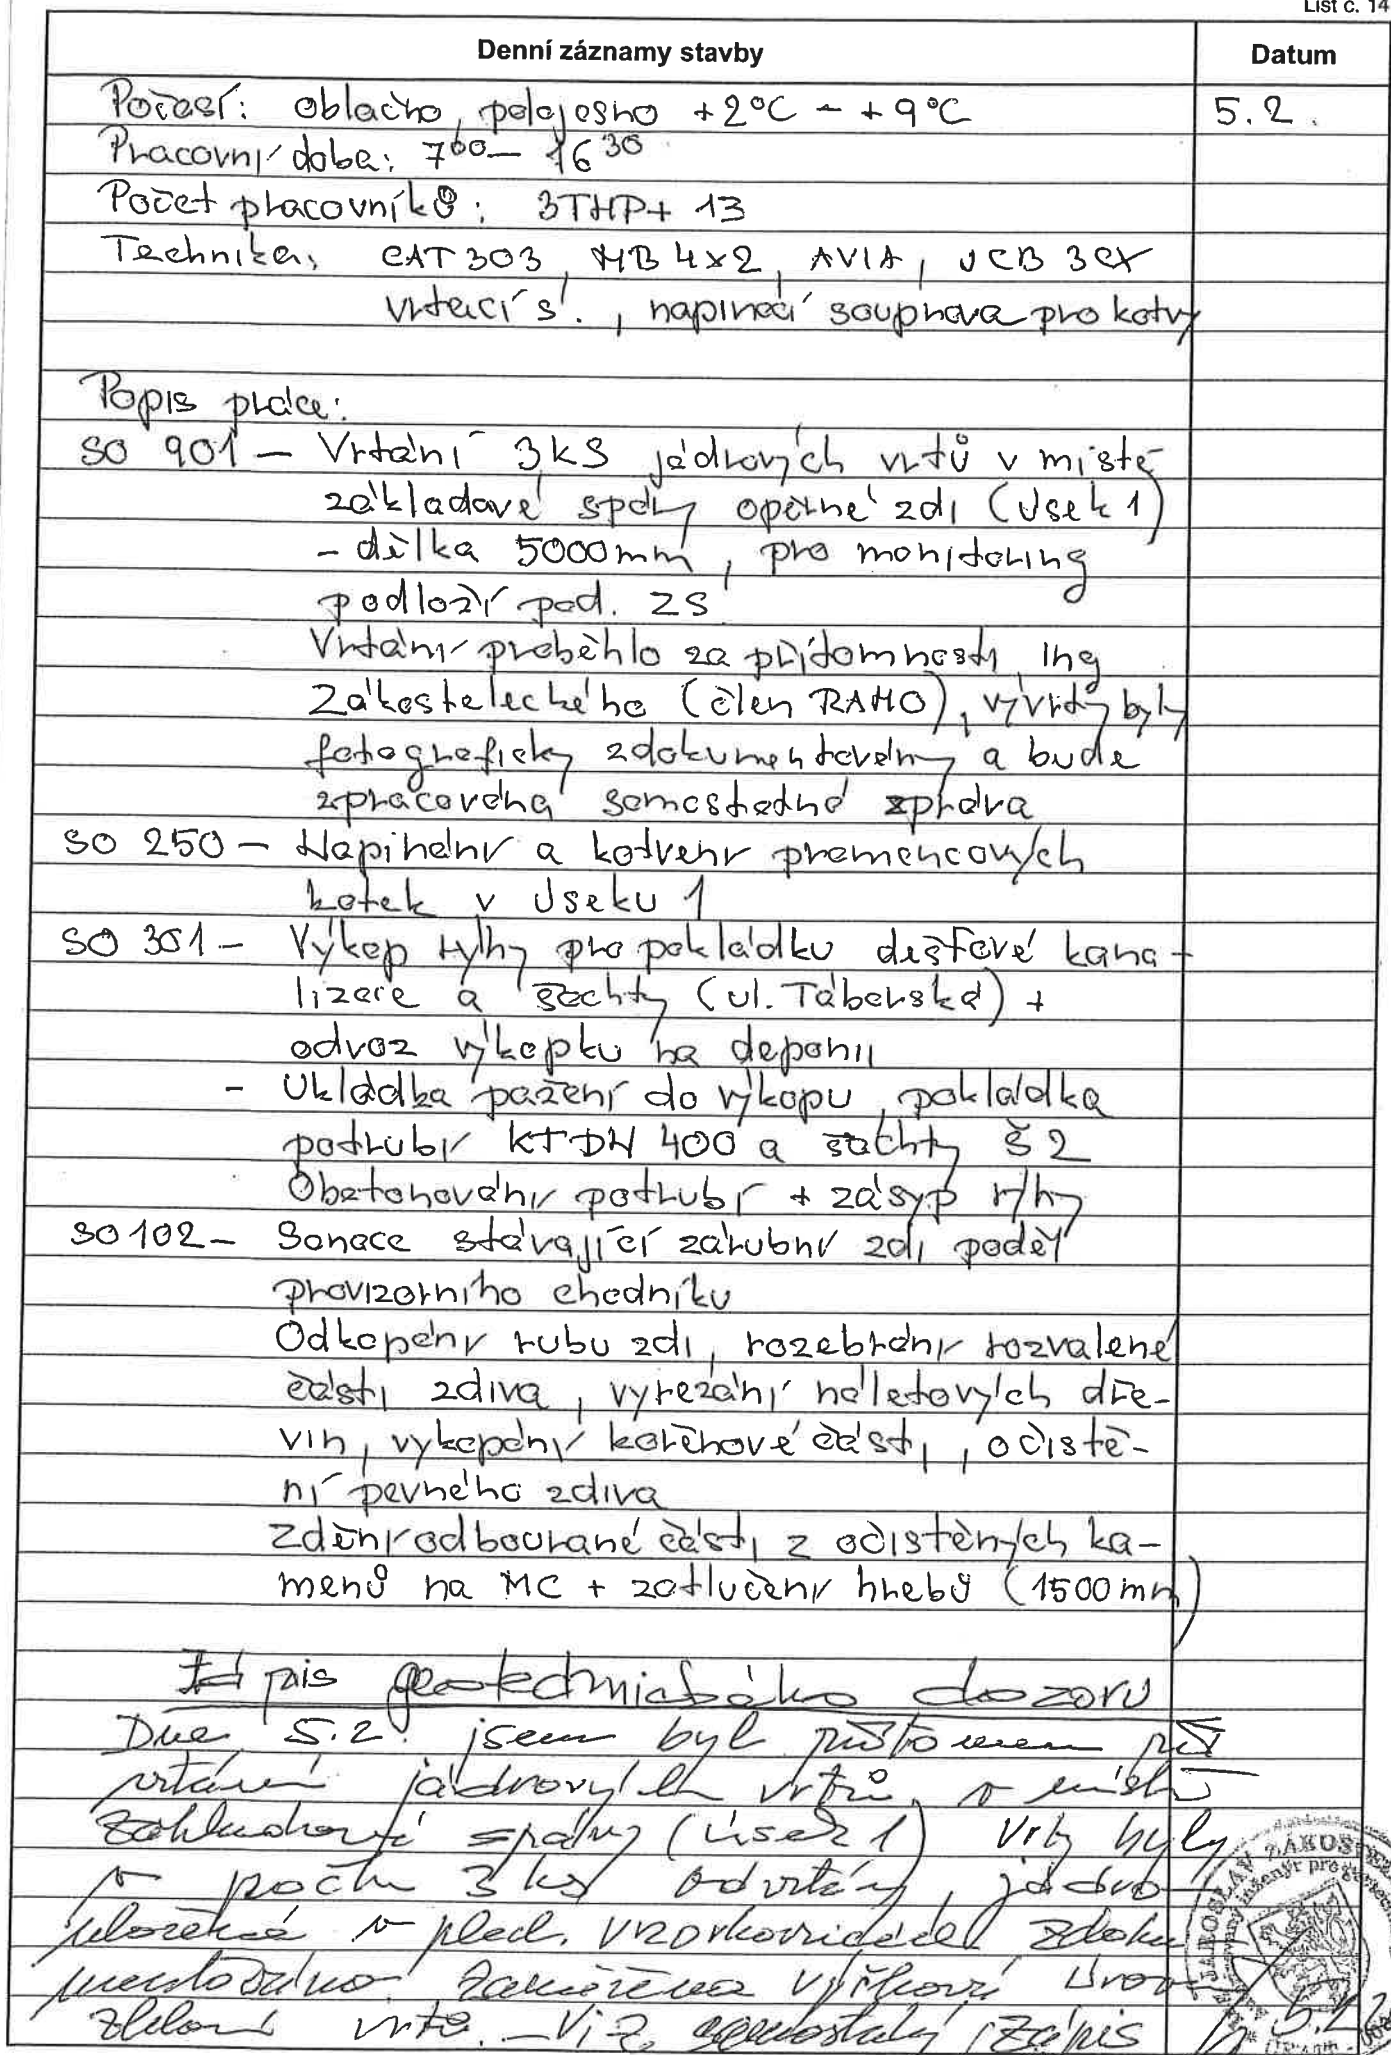 List č. 14
Denní záznamy stavby Datum
Počasí: oblačno, polojasno +2°C - +9°C 5.2.
Pracovní doba: 7⁰⁰ – 16³⁰
Počet pracovníků: 3THP + 13
Technika: CAT 303, MB 4x2, AVIA, JCB 3CX
vrtací s., napínací souprava pro kotvy
Popis práce:
SO 901 – Vrtání 3ks jádrových vrtů v místě
základové spáry opěrné zdi (úsek 1)
- délka 5000mm, pro monitoring
podloží pod. ZS
Vrtání proběhlo za přítomnosti Ing
Zákosteleckého (člen RAMO), vývrty byly
fotograficky zdokumentovány a bude
zpracovaná samostatná zpráva
SO 250 – Napínání a kotvení pramencových
kotek v úseku 1
SO 301 – Výkop rýhy pro pokládku dešťové kana-
lizace a šachty (ul. Táborská) +
odvoz výkopku na deponii
- Ukládka pažení do výkopu, pokládka
potrubí KTDN 400 a šachty Š2
Obetonování potrubí + zásyp rýhy
SO 102 – Sanace stávající zárubní zdi podél
provizorního chodníku
Odkopání rubu zdi, rozebrání rozvalené
části zdiva, vyřezání náletových dře-
vin, vykopání kořenové části, očistě-
ní pevného zdiva
Zdění odbourané části z očistěných ka-
menů na MC + zatlučení hřebů (1500mm)
Zápis geotechnického dozoru
Dne 5.2. jsem byl přítomen při
vrtání jádrových vrtů v místě
základové spáry (úsek 1) Vrty byly
v počtu 3 ks odvrtány, jádro
uloženo v vzorkovnicích zdoku
mentováno. Zaměřena výšková úrov
zhlaví vrtů. – Viz. samostatný zápis
5.2.
JAROSLAV ZÁKOSTE